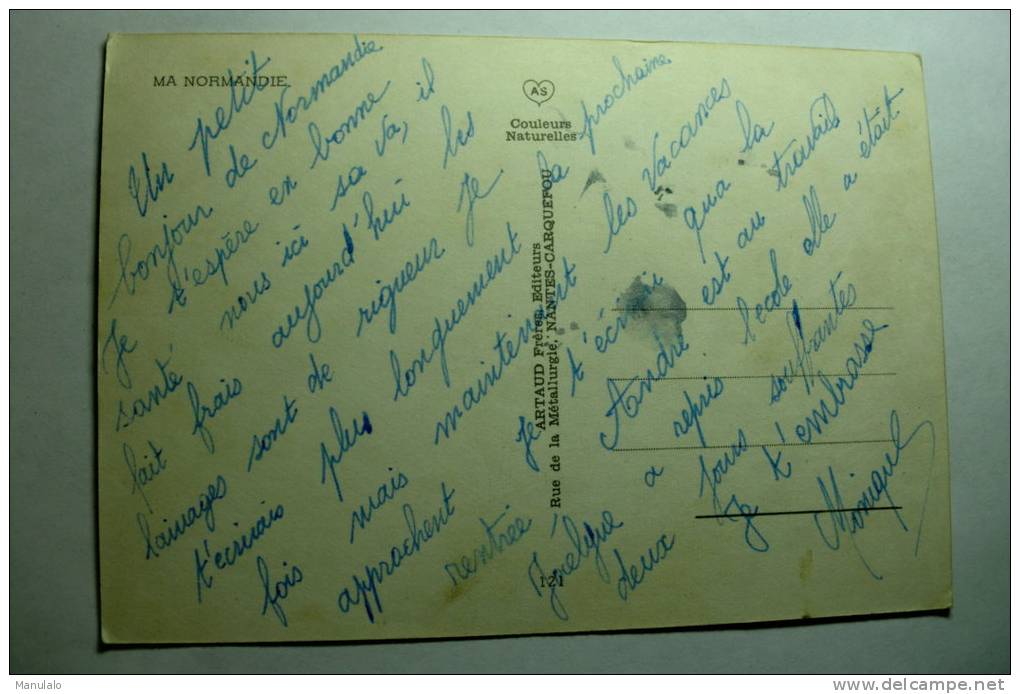 MA NORMANDIE.
AS
Couleurs
Naturelles
ARTAUD Frères Editeurs
Rue de la Métallurgie, NANTES-CARQUEFOU
121
Un petit
bonjour de Normandie
Je t'espère en bonne
santé nous ici sa va, il
fait frais aujourd'hui les
lainages sont de rigueur Je
t'écrirais plus longuement la prochaine
fois mais maintenant les vacances
approchent Je t'écrirai qua la
rentrée André est au travail
Joëlyne a repris l'ecole elle a était
deux jours souffrantes
Je t'embrasse
Monique
Manulalo
www.delcampe.net